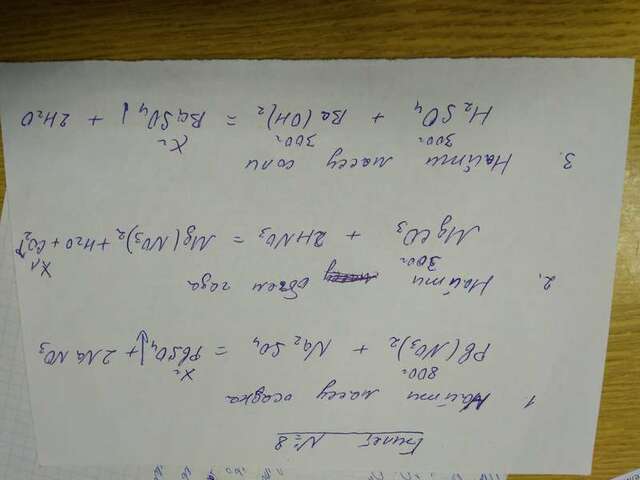 Билет №8
1 Найти массу осадка
800г Xг
Pb(NO3)2 + Na2SO4 = PbSO4↓ + 2NaNO3
2. Найти объем газа
300г Xл
MgCO3 + 2HNO3 = Mg(NO3)2 + H2O + CO2↑
3. Найти массу соли
300г 300г Xг
H2SO4 + Ba(OH)2 = BaSO4↓ + 2H2O